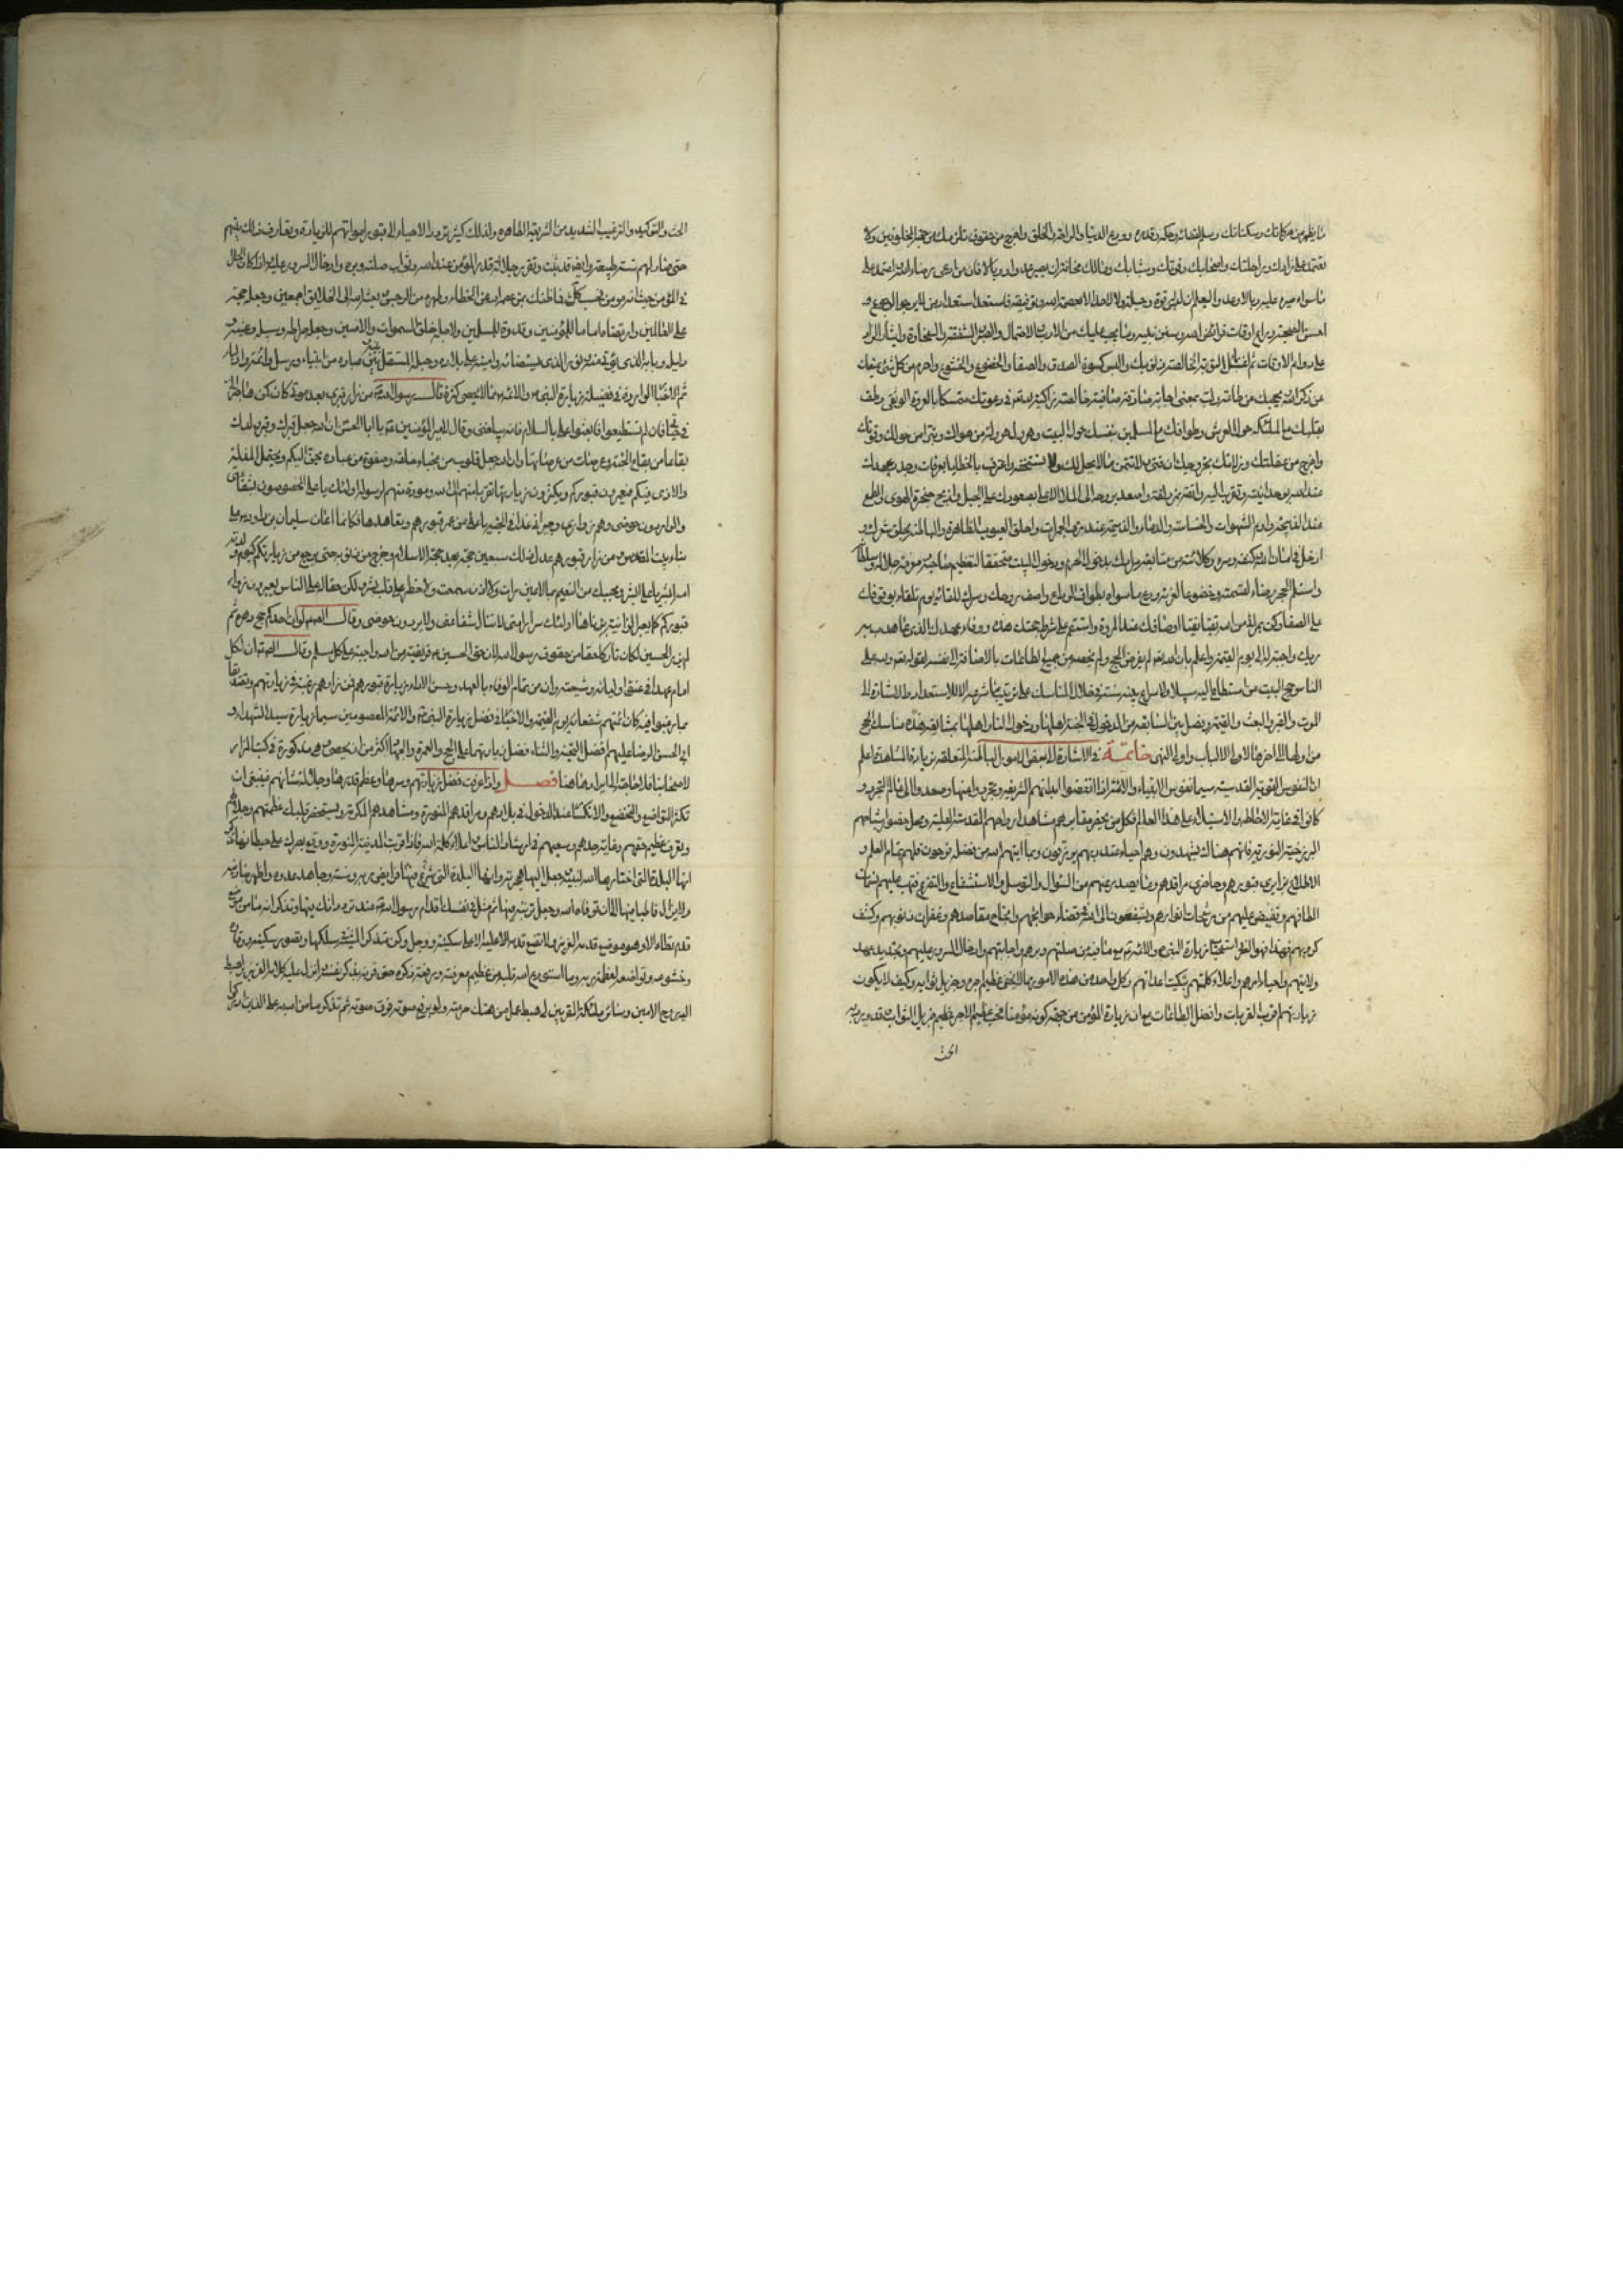 ما يظهر من حركاتك وسكناتك وسلم لقضائه وحكمه وقدره وودع الدنيا والراحة والخلق واخرج من حقوق تلزمك من جهة المخلوقين ولا
تعتمد على زادك وراحلتك واصحابك وقوتك وشبابك ومالك مخافة ان يصير عدوا ووبالا فان من ادعى رضا الله واعتمد على
ما سواه صيره عليه وبالا وعدوا ليعلم انه ليس له قوة وحيلة ولا لاحد الا بعصمة الله وتوفيقه فاستعد استعداد من لا يرجو الرجوع و
احسن الصحبة وراع اوقات فرائض الله وسنن نبيه وما يجب عليك من الادب والاحتمال والصبر والشكر والشفقة والسخاوة وايثار الزاد
على دوام الاوقات ثم اغتسل بماء التوبة الخالصة ذنوبك والبس كسوة الصدق والصفا والخضوع والخشوع واحرم من كل شيء يمنعك
عن ذكر الله ويحجبك عن طاعته ولب بمعنى اجابة صادقة صافية خالصة زاكية لله تعالى في دعوتك متمسكا بالعروة الوثقى وطف
بقلبك مع الملائكة حول العرش كطوافك مع المسلمين بنفسك حول البيت وهرول هرولة من هواك وتبرأ من حولك وقوتك
واخرج من غفلتك وزلاتك بخروجك الى منى ولا تتمن ما لا يحل لك ولا تستحقه واعترف بالخطايا بعرفات وجدد عهدك
عند الله بوحدانيته وتقرب اليه واتقه بمزدلفة واصعد بروحك الى الملأ الاعلى بصعودك على الجبل واذبح حنجرة الهوى والطمع
عند الذبيحة وارم الشهوات والخساسة والدناءة والذميمة عند رمي الجمرات واحلق العيوب الظاهرة والباطنة بحلق شعرك و
ادخل في امان الله وكنفه وستره وكلائته من متابعة مرادك بدخول الحرم ودخول البيت متحققا لتعظيم صاحبه ومعرفة جلاله وسلطانه
واستلم الحجر رضاء لقسمته وخضوعا لعزته وودع ما سواه بطواف الوداع واصف روحك وسرك للقائه يوم تلقاه بوقوفك
على الصفا وكن بمرأى من الله نقيا اوصافك عند المروة واستقم على شرط حجتك هذه ووفاء عهدك الذي عاهدت به
ربك واوجبته له الى يوم القيمة واعلم بان الله تعالى لم يفرض الحج ولم يخصه من جميع الطاعات بالاضافة الى نفسه بقوله تعالى ولله على
الناس حج البيت من استطاع اليه سبيلا ولا شرع نبيه سنة في خلال المناسك على ترتيب ما شرعه الا للاستعداد والاشارة الى
الموت والقبر والبعث والقيمة وفصل بيان السابقة من الدخول في الجنة اهلها ودخول النار اهلها بمشاهدة مناسك الحج
من اولها الى اخرها لاولي الالباب واولي النهى خاتمة في الاشارة الى بعض الامور الباطنة المتعلقة بزيارة المشاهد اعلم
ان النفوس القوية القدسية سيما نفوس الانبياء والائمة اذا نفضوا ابدانهم الشريفة وتجردوا عنها وصعدوا الى عالم التجرد و
كانوا في غاية الاحاطة والاستيلاء على هذا العالم فكل من يحضر مقابرهم يشاهد ارواحهم المقدسة العلية وبحصول حضور اشباحهم
البرزخية النورية فانهم هنالك يشهدون وهم احياء عند ربهم يرزقون وبما آتاهم الله من فضله فرحون فلهم تمام العلم و
الاطلاع بزائري قبورهم وحاضري مراقدهم وما يصدر عنهم من السؤال والتوسل والاستشفاع والتضرع فتهب عليهم نسمات
الطافهم وتفيض عليهم من رشحات انوارهم ويشفعون الى الله في قضاء حوائجهم وانجاح مقاصدهم وغفران ذنوبهم وكشف
كروبهم فهذا هو السر في استحباب زيارة النبي والائمة مع ما فيه من صلتهم وبرهم واجابتهم وادخال السرور عليهم وتجديد عهد
ولايتهم واحياء امرهم واعلاء كلمتهم وتنكيت اعدائهم وكل واحد من هذه الامور مما لا يخفى عظيم اجره وجزيل ثوابه وكيف لا يكون
زيارتهم اقرب القربات واشرف الطاعات مع ان زيارة المؤمن من جهة كونه مؤمنا فحسب عظيم الاجر جزيل الثواب قد ورد به
الحث
الحث والتوكيد والترغيب الشديد من الشريعة الطاهرة ولذلك كثر تردد الاحياء الى قبور امواتهم للزيارة وتعارف ذلك بينهم
حتى صار لهم سنة طبيعية وايضا قد ثبت وتقرر جلالة قدر المؤمن عند الله وثواب صلته وبره وادخال السرور عليه واذا كان الحال
في المؤمن من حيث انه مؤمن فما ظنك بمن عصمه الله عن الخطاء وطهره من الرجس وبعثه الله الى الخلائق اجمعين وجعله حجة
على العالمين وارتضاه اماما للمؤمنين وقدوة للمسلمين ولاجله خلق السموات والارضين وجعله صراطه وسبيله وعينه و
دليله وبابه الذي يؤتى منه ونوره الذي يستضاء به وامينه على بلاده وحبله المتصل بينه وبين عباده من انبياء ورسل وائمة واولياء
ثم الاخبار الواردة في فضيلة زيارة النبي والائمة مما لا يحصى كثرة قال رسول الله من زار قبري بعد موتي كان كمن هاجر الي
في حياتي فان لم تستطيعوا فابعثوا الي بالسلام فانه يبلغني وقال لامير المؤمنين يا ابا الحسن ان الله جعل قبرك وقبر ولدك
بقاعا من بقاع الجنة وعرصات من عرصاتها وان الله جعل قلوب نجباء خلقه وصفوة من عباده تحن اليكم وتحتمل المذلة
والاذى فيكم فيعمرون قبوركم ويكثرون زيارتها تقربا منهم الى الله ومودة منهم لرسوله اولئك يا علي المخصوصون بشفاعتي
والواردون حوضي وهم زواري وجيراني غدا في الجنة يا علي من عمر قبورهم وتعاهدها فكانما اعان سليمان بن داود على
بناء بيت المقدس ومن زار قبورهم عدل ذلك سبعين حجة بعد حجة الاسلام وخرج من ذنوبه حتى يرجع من زيارتكم كيوم ولدته
امه ابشر يا علي وبشر محبيك من النعيم بما لا عين رأت ولا اذن سمعت ولا خطر على قلب بشر ولكن حثالة من الناس يعيرون زوار
قبوركم كما يعير الزانية بزناها اولئك شرار امتي لا تنالهم شفاعتي ولا يردون حوضي وقال الصادق لو ان احدكم حج دهره ثم
لم يزر الحسين لكان تاركا حقا من حقوق رسول الله لان حق الحسين فريضة من الله واجبة على كل مسلم وقال الرضا ان لكل
امام عهدا في عنق اوليائه وشيعته وان من تمام الوفاء بالعهد وحسن الاداء زيارة قبورهم فمن زارهم رغبة في زيارتهم وتصديقا
بما رغبوا فيه كان ائمتهم شفعائه يوم القيمة والاخبار في فضل زيارة النبي والائمة المعصومين سيما زيارة سيد الشهداء و
ابي الحسن الرضا عليهم افضل التحية والثناء وفضل زيارتهما على الحج والعمرة والجهاد اكثر من ان يحصى وهي مذكورة في كتب المزار
لاصحابنا فلا حاجة الى ايرادها هنا فصل واذا عرفت فضل زيارتهم وسرها وعظم قدرها وجلالة شأنهم فينبغي ان
تكثر التواضع والتخضع والانكسار عند الدخول في بلادهم ومراقدهم المنورة ومشاهدهم المكرمة وتستحضر في قلبك عظمتهم وجلالهم
وتعرف عظيم حقهم وغاية جدهم وسعيهم في ارشاد الناس واعلاء كلمة الله فاذا قربت المدينة المنورة ووقع بصرك على حيطانها تذكر
انها البلدة التي اختارها الله لنبيه وجعل اليها هجرته وانها البلدة التي شرع فيها فرائض ربه وسننه وجاهد عدوه واظهر بها دينه
ولم يزل قاطنا بها الى ان توفاه الله وجعل تربته فيها ثم مثل في نفسك اقدام رسول الله عند ترددك فيها وتذكر انه ما من موضع
قدم تطأه الا وهو موضع قدمه العزيز فلا تضع قدمك عليه الا على سكينة ووجل وكن متذكرا لمشيه في سككها وتصور سكينته ووقاره
وخشوعه وتواضعه لعظمة ربه وما استودع الله قلبه من عظيم معرفته ورفعة ذكره حتى قرنه بذكر نفسه وانزل عليه كلامه العزيز واهبط
اليه روح الامين وسائر ملائكته المقربين واحبط عمل من هتك حرمته ولو برفع صوته فوق صوته ثم تذكر ما من الله به على الذين ادركوا